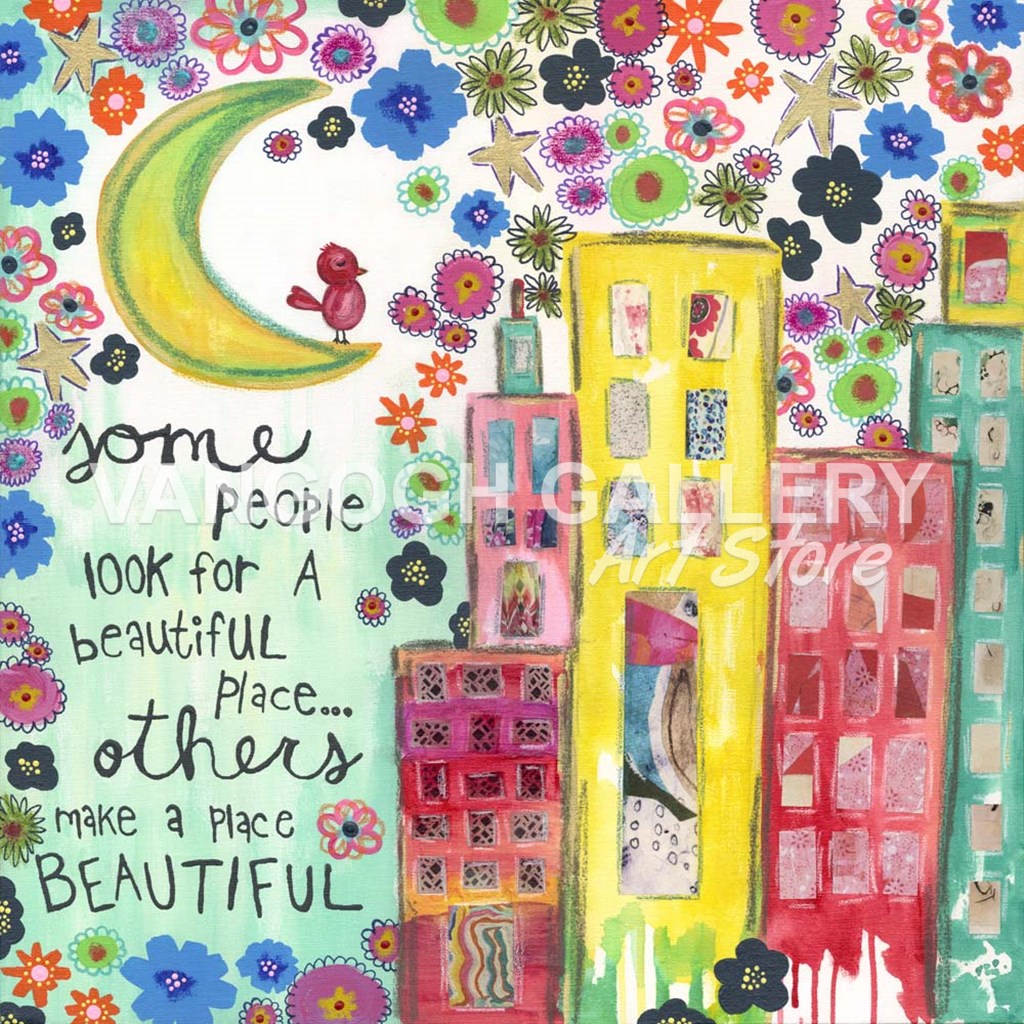 some
people
look for A
beautiful
place...
others
make a place
BEAUTIFUL
VANGOGH GALLERY
Art Store